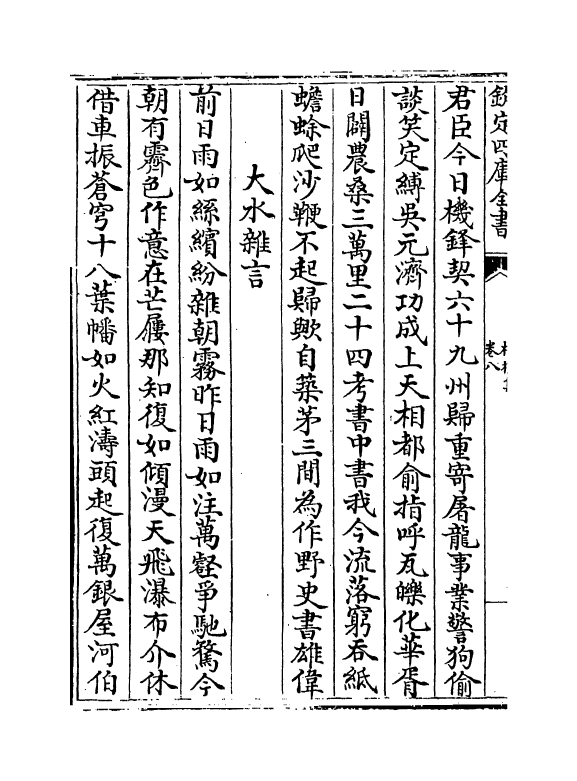 欽定四庫全書
卷八
君臣今日機鋒契六十九州歸重寄屠龍事業警狗偷
談笑定縛吳元濟功成上天相都俞指呼瓦礫化華胥
日闢農桑三萬里二十四考書中書我今流落窮吞紙
蟾蜍爬沙鞭不起歸歟自築茅三間為作野史書雄偉
大水雜言
前日雨如絲繽紛雜朝霧昨日雨如注萬壑爭馳騖今
朝有霽色作意在芒屨那知復如傾漫天飛瀑布介休
借車振蒼穹十八葉幡如火紅濤頭起復萬銀屋河伯